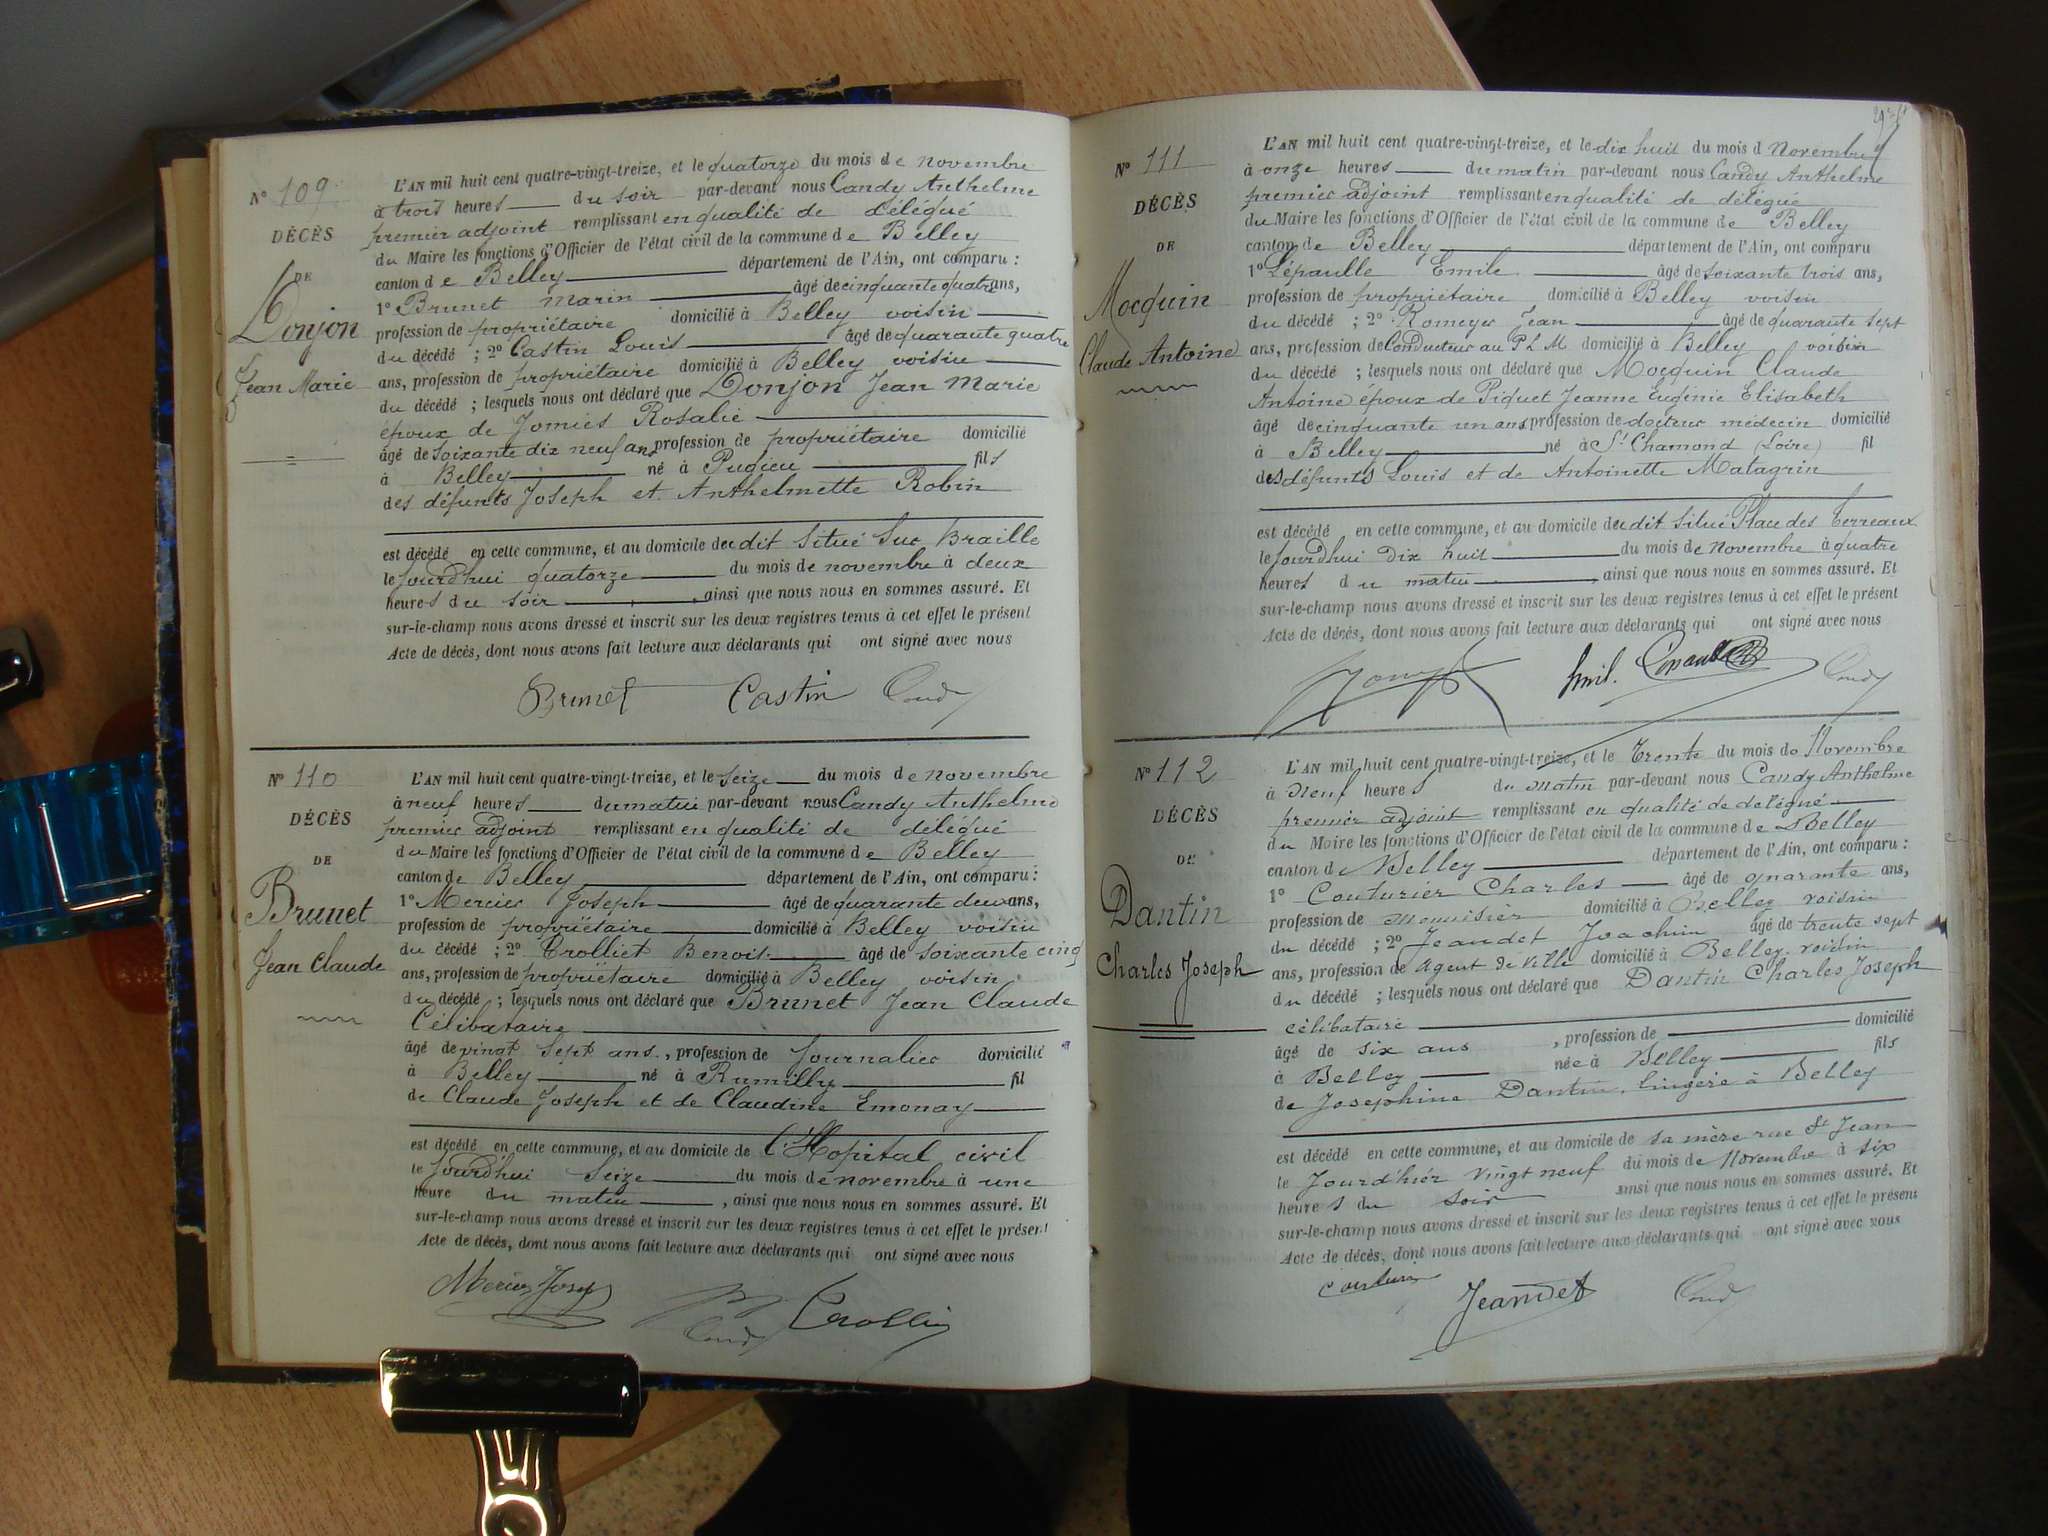 N° 109
DÉCÈS
DE
Donjon
Jean Marie
L'AN mil huit cent quatre-vingt-treize, et le quatorze du mois de novembre
à trois heures du soir par-devant nous Candy Anthelme
premier adjoint remplissant en qualité de délégué
du Maire les fonctions d'Officier de l'état civil de la commune de Belley
canton de Belley département de l'Ain, ont comparu :
1° Brunet Marin âgé de cinquante quatre ans,
profession de propriétaire domicilié à Belley voisin
du décédé ; 2° Castin Louis âgé de quarante quatre
ans, profession de propriétaire domicilié à Belley voisin
du décédé ; lesquels nous ont déclaré que Donjon Jean Marie
époux de Jomies Rosalie
âgé de soixante dix neuf ans profession de propriétaire domicilié
à Belley né à Pugieu fils
des défunts Joseph et Anthelmette Robin
est décédé en cette commune, et au domicile du dit situé Sur Braille
le jourd'hui quatorze du mois de novembre à deux
heures du soir, ainsi que nous nous en sommes assuré. Et
sur-le-champ nous avons dressé et inscrit sur les deux registres tenus à cet effet le présent
Acte de décès, dont nous avons fait lecture aux déclarants qui ont signé avec nous
Brunet Castin Candy
N° 110
DÉCÈS
DE
Brunet
Jean Claude
L'AN mil huit cent quatre-vingt-treize, et le seize du mois de novembre
à neuf heures du matin par-devant nous Candy Anthelme
premier adjoint remplissant en qualité de délégué
du Maire les fonctions d'Officier de l'état civil de la commune de Belley
canton de Belley département de l'Ain, ont comparu :
1° Mercier Joseph âgé de quarante deux ans,
profession de propriétaire domicilié à Belley voisin
du décédé ; 2° Trolliet Benoit âgé de soixante cinq
ans, profession de propriétaire domicilié à Belley voisin
du décédé ; lesquels nous ont déclaré que Brunet Jean Claude
Célibataire
âgé de vingt sept ans, profession de journalier domicilié
à Belley né à Rumilly fil
de Claude Joseph et de Claudine Emonay
est décédé en cette commune, et au domicile de l'Hopital civil
le jourd'hui seize du mois de novembre à une
heure du matin, ainsi que nous nous en sommes assuré. Et
sur-le-champ nous avons dressé et inscrit sur les deux registres tenus à cet effet le présent
Acte de décès, dont nous avons fait lecture aux déclarants qui ont signé avec nous
Mercier Josep Candy
N° 111
DÉCÈS
DE
Mocquin
Claude Antoine
L'AN mil huit cent quatre-vingt-treize, et le dix huit du mois d Novembre
à onze heures du matin par-devant nous Candy Anthelme
premier adjoint remplissant en qualité de délégué
du Maire les fonctions d'Officier de l'état civil de la commune de Belley
canton de Belley département de l'Ain, ont comparu
1° Lépaulle Emile âgé de soixante trois ans,
profession de propriétaire domicilié à Belley voisin
du décédé ; 2° Romeyer Jean âgé de quarante sept
ans, profession de Conducteur au P L M domicilié à Belley voisin
du décédé ; lesquels nous ont déclaré que Mocquin Claude
Antoine époux de Piquet Jeanne Eugénie Elisabeth
âgé de cinquante un ans profession de docteur médecin domicilié
à Belley né à St Chamond (Loire) fil
des défunts Louis et de Antoinette Matagrin
est décédé en cette commune, et au domicile du dit situé Place des Terreaux
le jourd'hui dix huit du mois de novembre à quatre
heures du matin, ainsi que nous nous en sommes assuré. Et
sur-le-champ nous avons dressé et inscrit sur les deux registres tenus à cet effet le présent
Acte de décès, dont nous avons fait lecture aux déclarants qui ont signé avec nous
Candy
N° 112
DÉCÈS
DE
Dantin
Charles Joseph
L'AN mil huit cent quatre-vingt-treize, et le Trente du mois de Novembre
à Neuf heures du matin par-devant nous Candy Anthelme
premier adjoint remplissant en qualité de délégué
du Maire les fonctions d'Officier de l'état civil de la commune de Belley
canton d Belley département de l'Ain, ont comparu :
1° Couturier Charles âgé de quarante ans,
profession de Menuisier domicilié à Belley voisin
du décédé ; 2° Jeandet Joachim âgé de trente sept
ans, profession de Agent de Ville domicilié à Belley voisin
du décédé ; lesquels nous ont déclaré que Dantin Charles Joseph
célibataire
âgé de six ans, profession de domicilié
à Belley née à Belley fils
de Josephine Dantin, lingère à Belley
est décédé en cette commune, et au domicile de sa mère rue St Jean
le Jourd'hier vingt neuf du mois de Novembre à six
heures du soir ainsi que nous nous en sommes assuré. Et
sur-le-champ nous avons dressé et inscrit sur les deux registres tenus à cet effet le présent
Acte de décès, dont nous avons fait lecture aux déclarants qui ont signé avec nous
Jeandet Candy